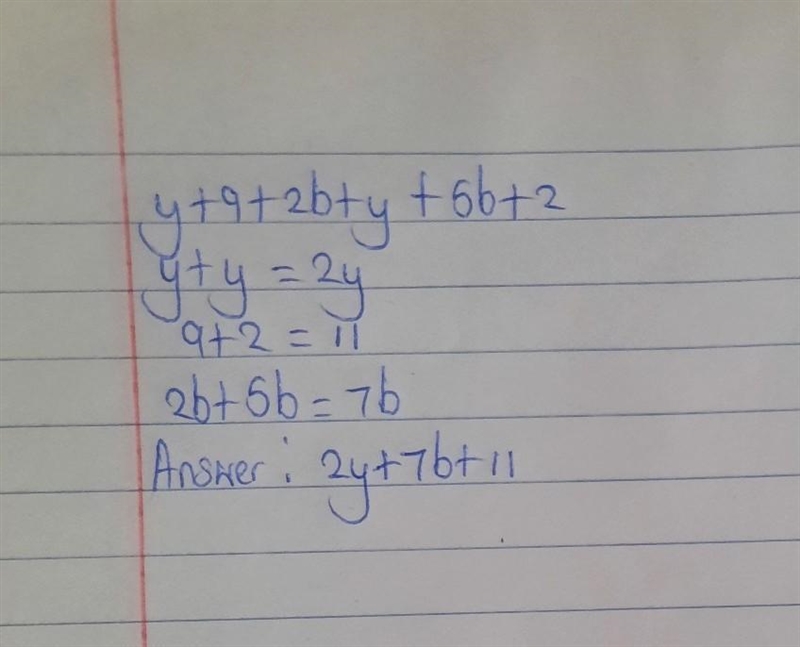 y+9+2b+y+5b+2
y+y=2y
9+2=11
2b+5b=7b
Answer: 2y+7b+11